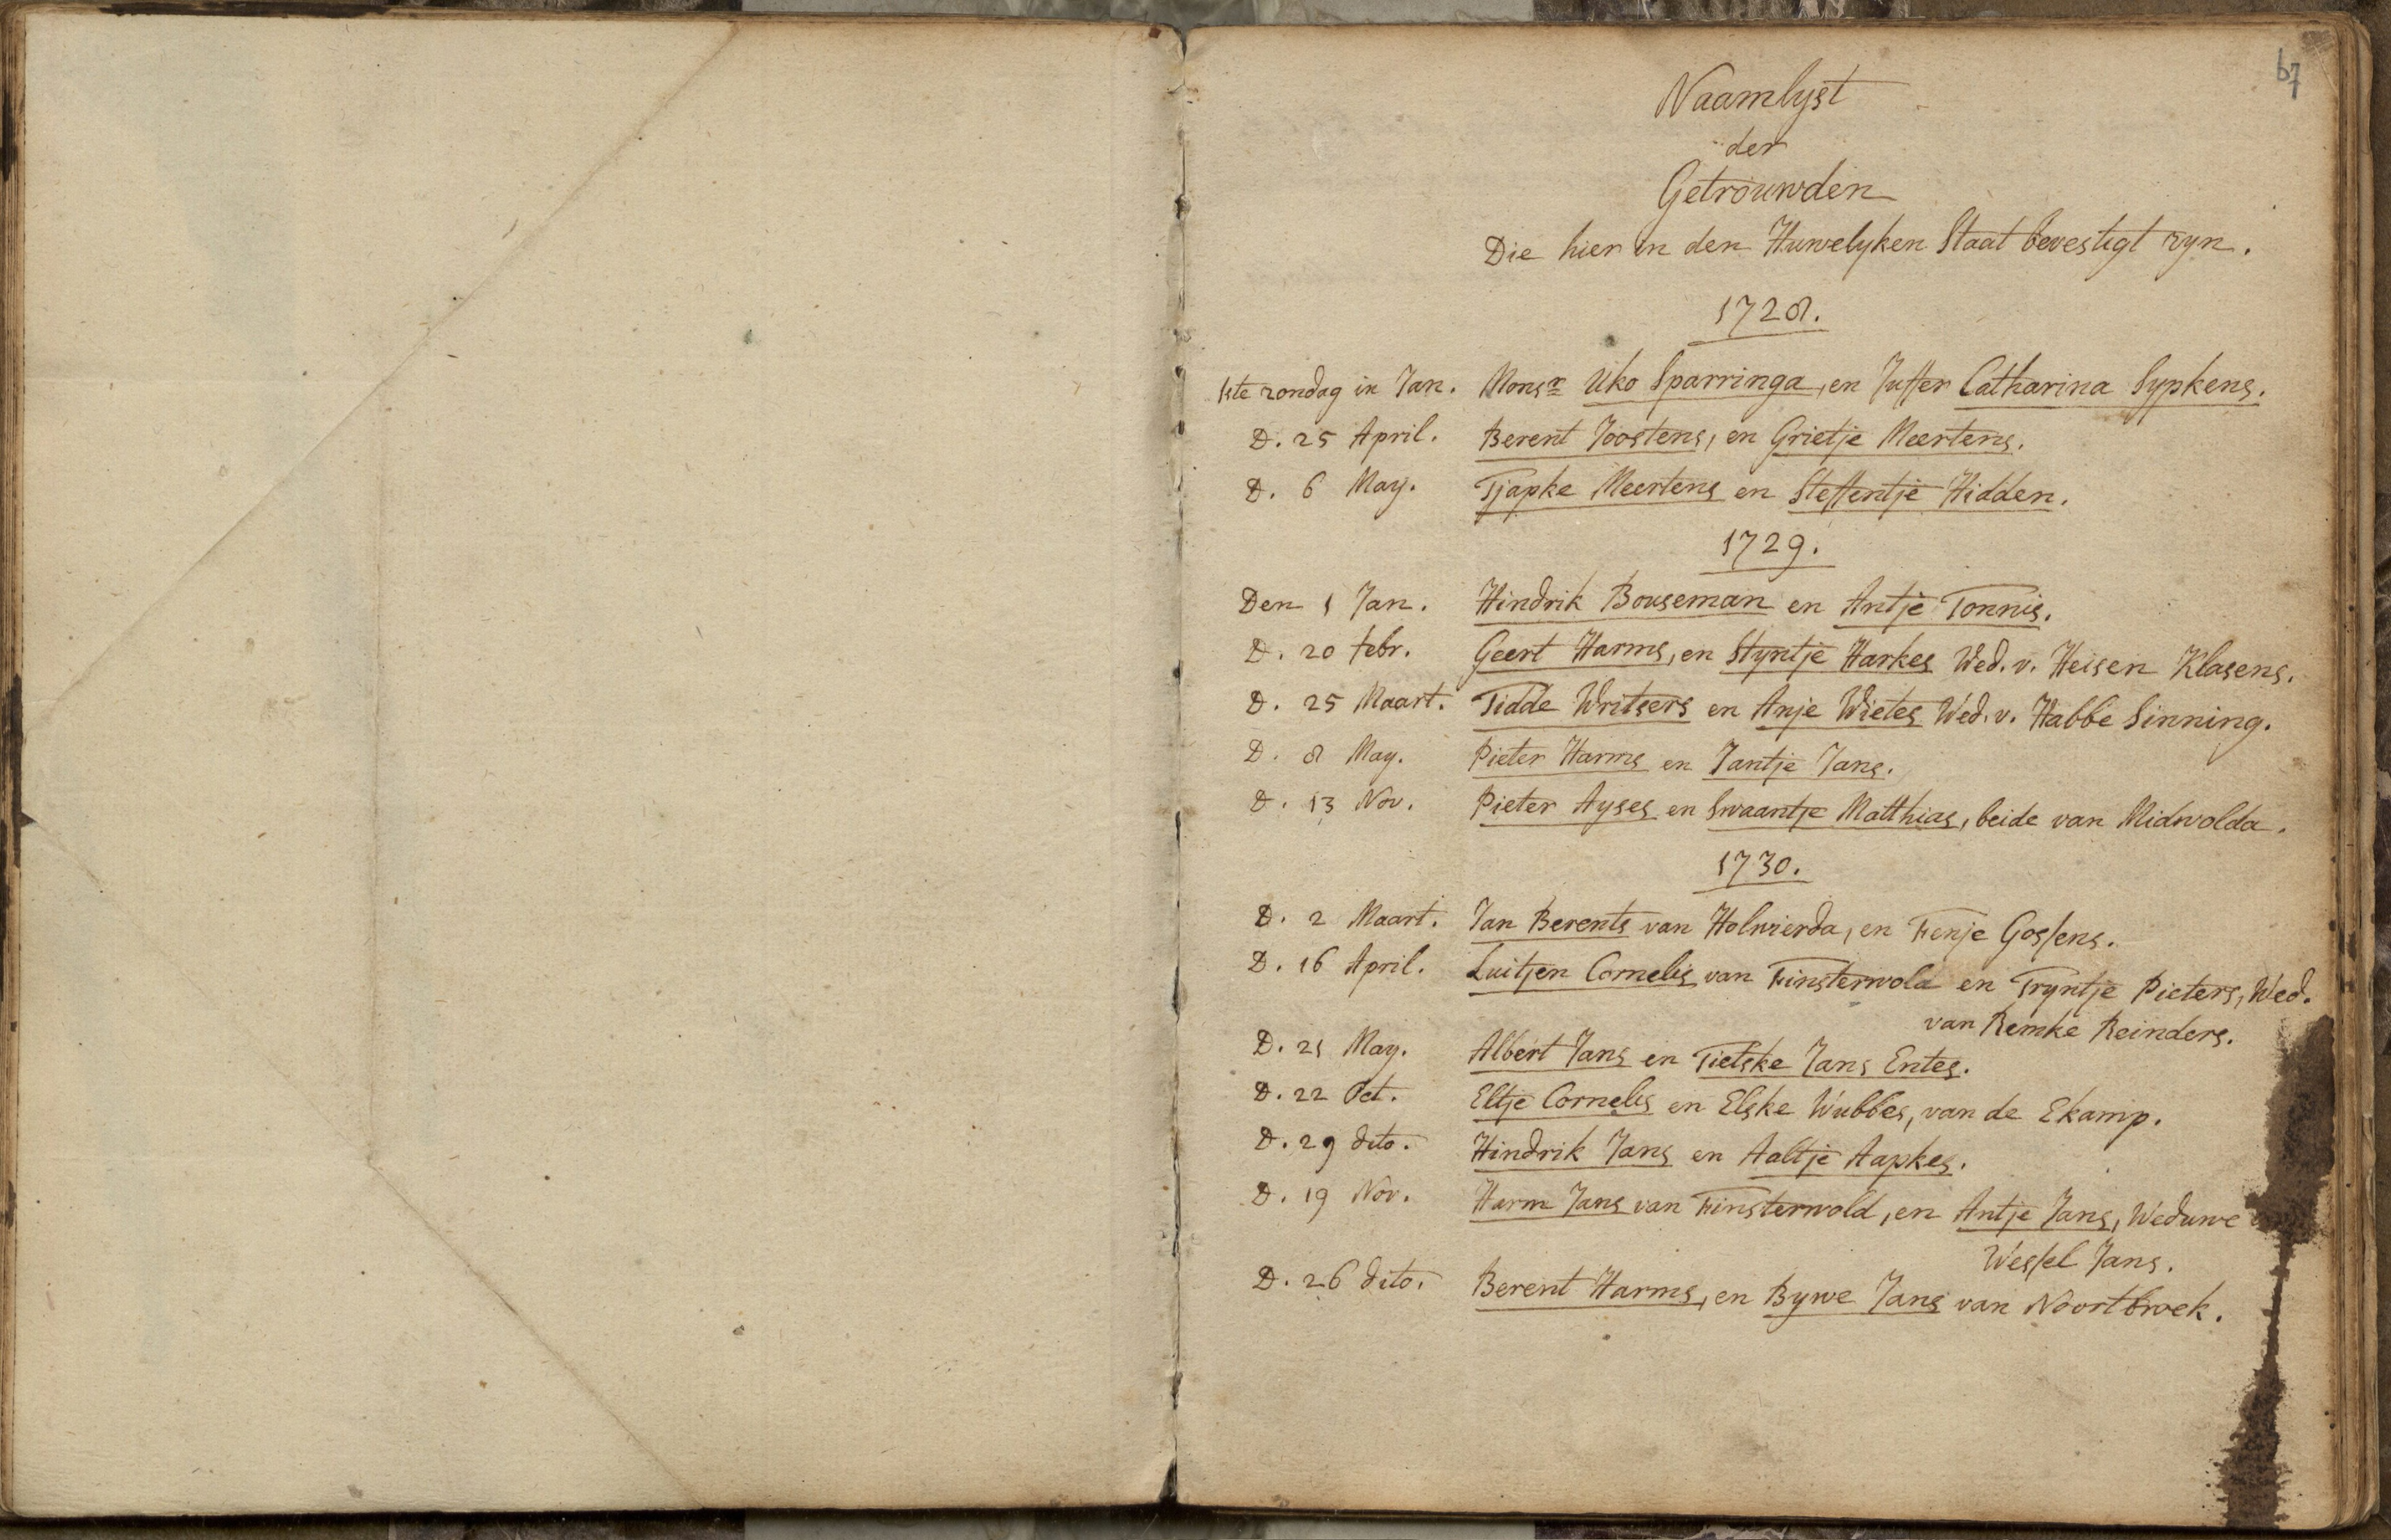 67
Naamlyst
der
Getrouwden
Die hier in den Huwelyken Staat bevestigt zyn.
1728.
1ste zondag in Jan. Monsr Uko Sparringa, en Juffer Catharina Sypkens.
D. 25 April. Berent Joostens, en Grietje Meertens.
D. 6 May. Tjapke Meertens en Steffentje Hidden.
1729.
Den 1 Jan. Hindrik Bouseman en Antje Tonnis.
D. 20 febr. Geert Harms, en Styntje Harkes Wed. v. Heisen Klasens.
D. 25 Maart. Tidde Writsers en Anje Wietes Wed. v. Habbe Sinning.
D. 8 May. Pieter Harms en Jantje Jans.
D. 13 Nov. Pieter Ayses en Swaantje Matthias, beide van Midwolda.
1730.
D. 2 Maart. Jan Berents van Holwierda, en Fenje Gossens.
D. 16 April. Luitjen Cornelis van Finsterwold en Tryntje Pieters, Wed.
van Remke Reinders.
D. 21 May. Albert Jans en Tietske Jans Entes.
D. 22 Oct. Eltje Cornelis en Elske Wubbes, van de Ekamp.
D. 29 dito. Hindrik Jans en Aaltje Aapkes.
D. 19 Nov. Harm Jans van Finsterwold, en Antje Jans, Weduwe
Wessel Jans.
D. 26 dito. Berent Harms, en Bywe Jans van Noortbroek.